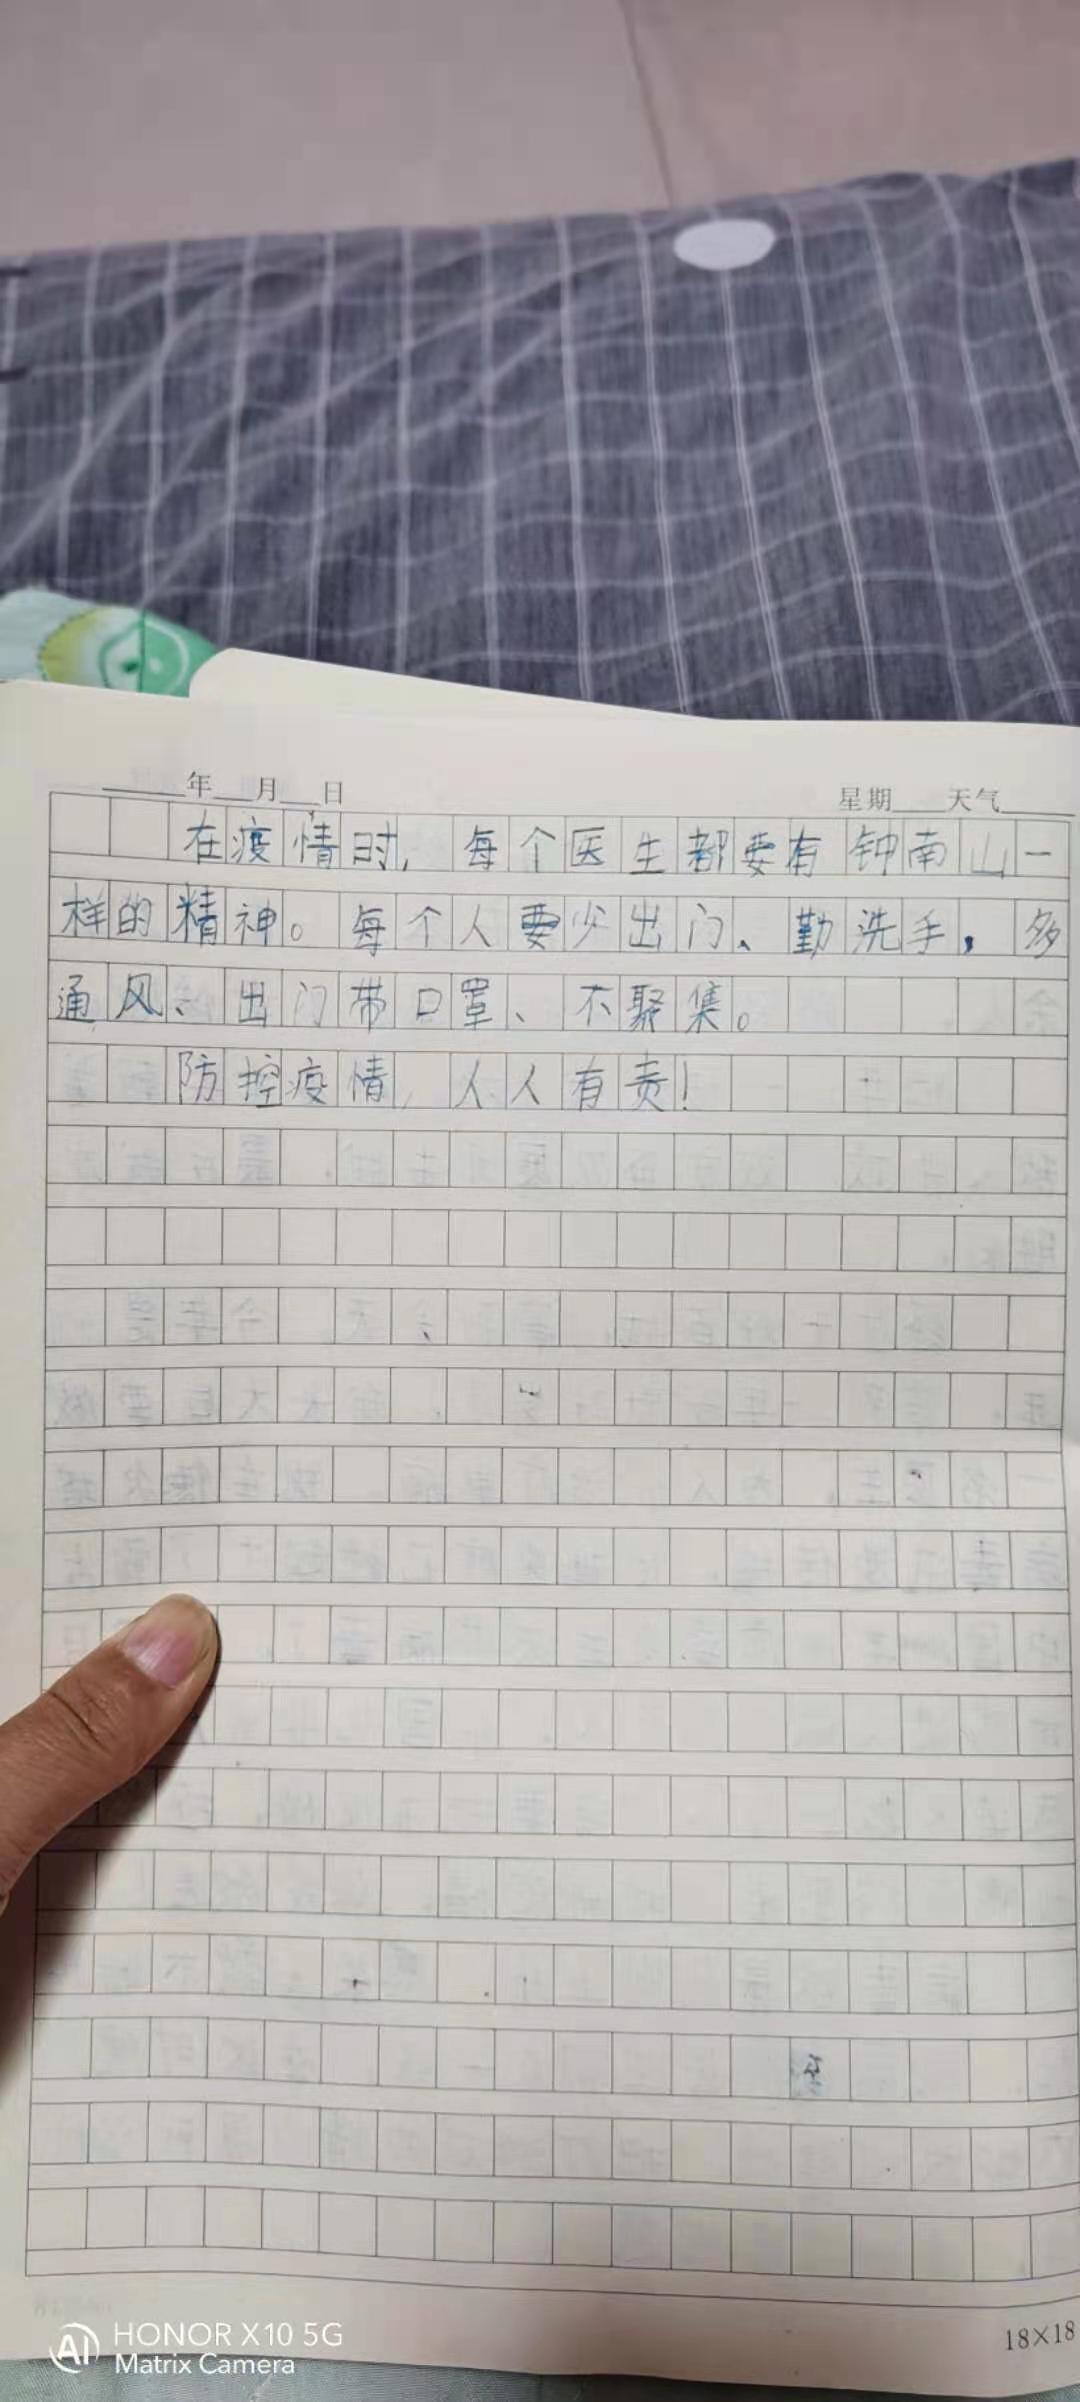 ____年__月__日 星期___天气____
在疫情时，每个医生都要有钟南山一
样的精神。每个人要少出门、勤洗手，多
通风、出门带口罩、不聚集。
防控疫情，人人有责！
18×18
AI HONOR X10 5G
Matrix Camera